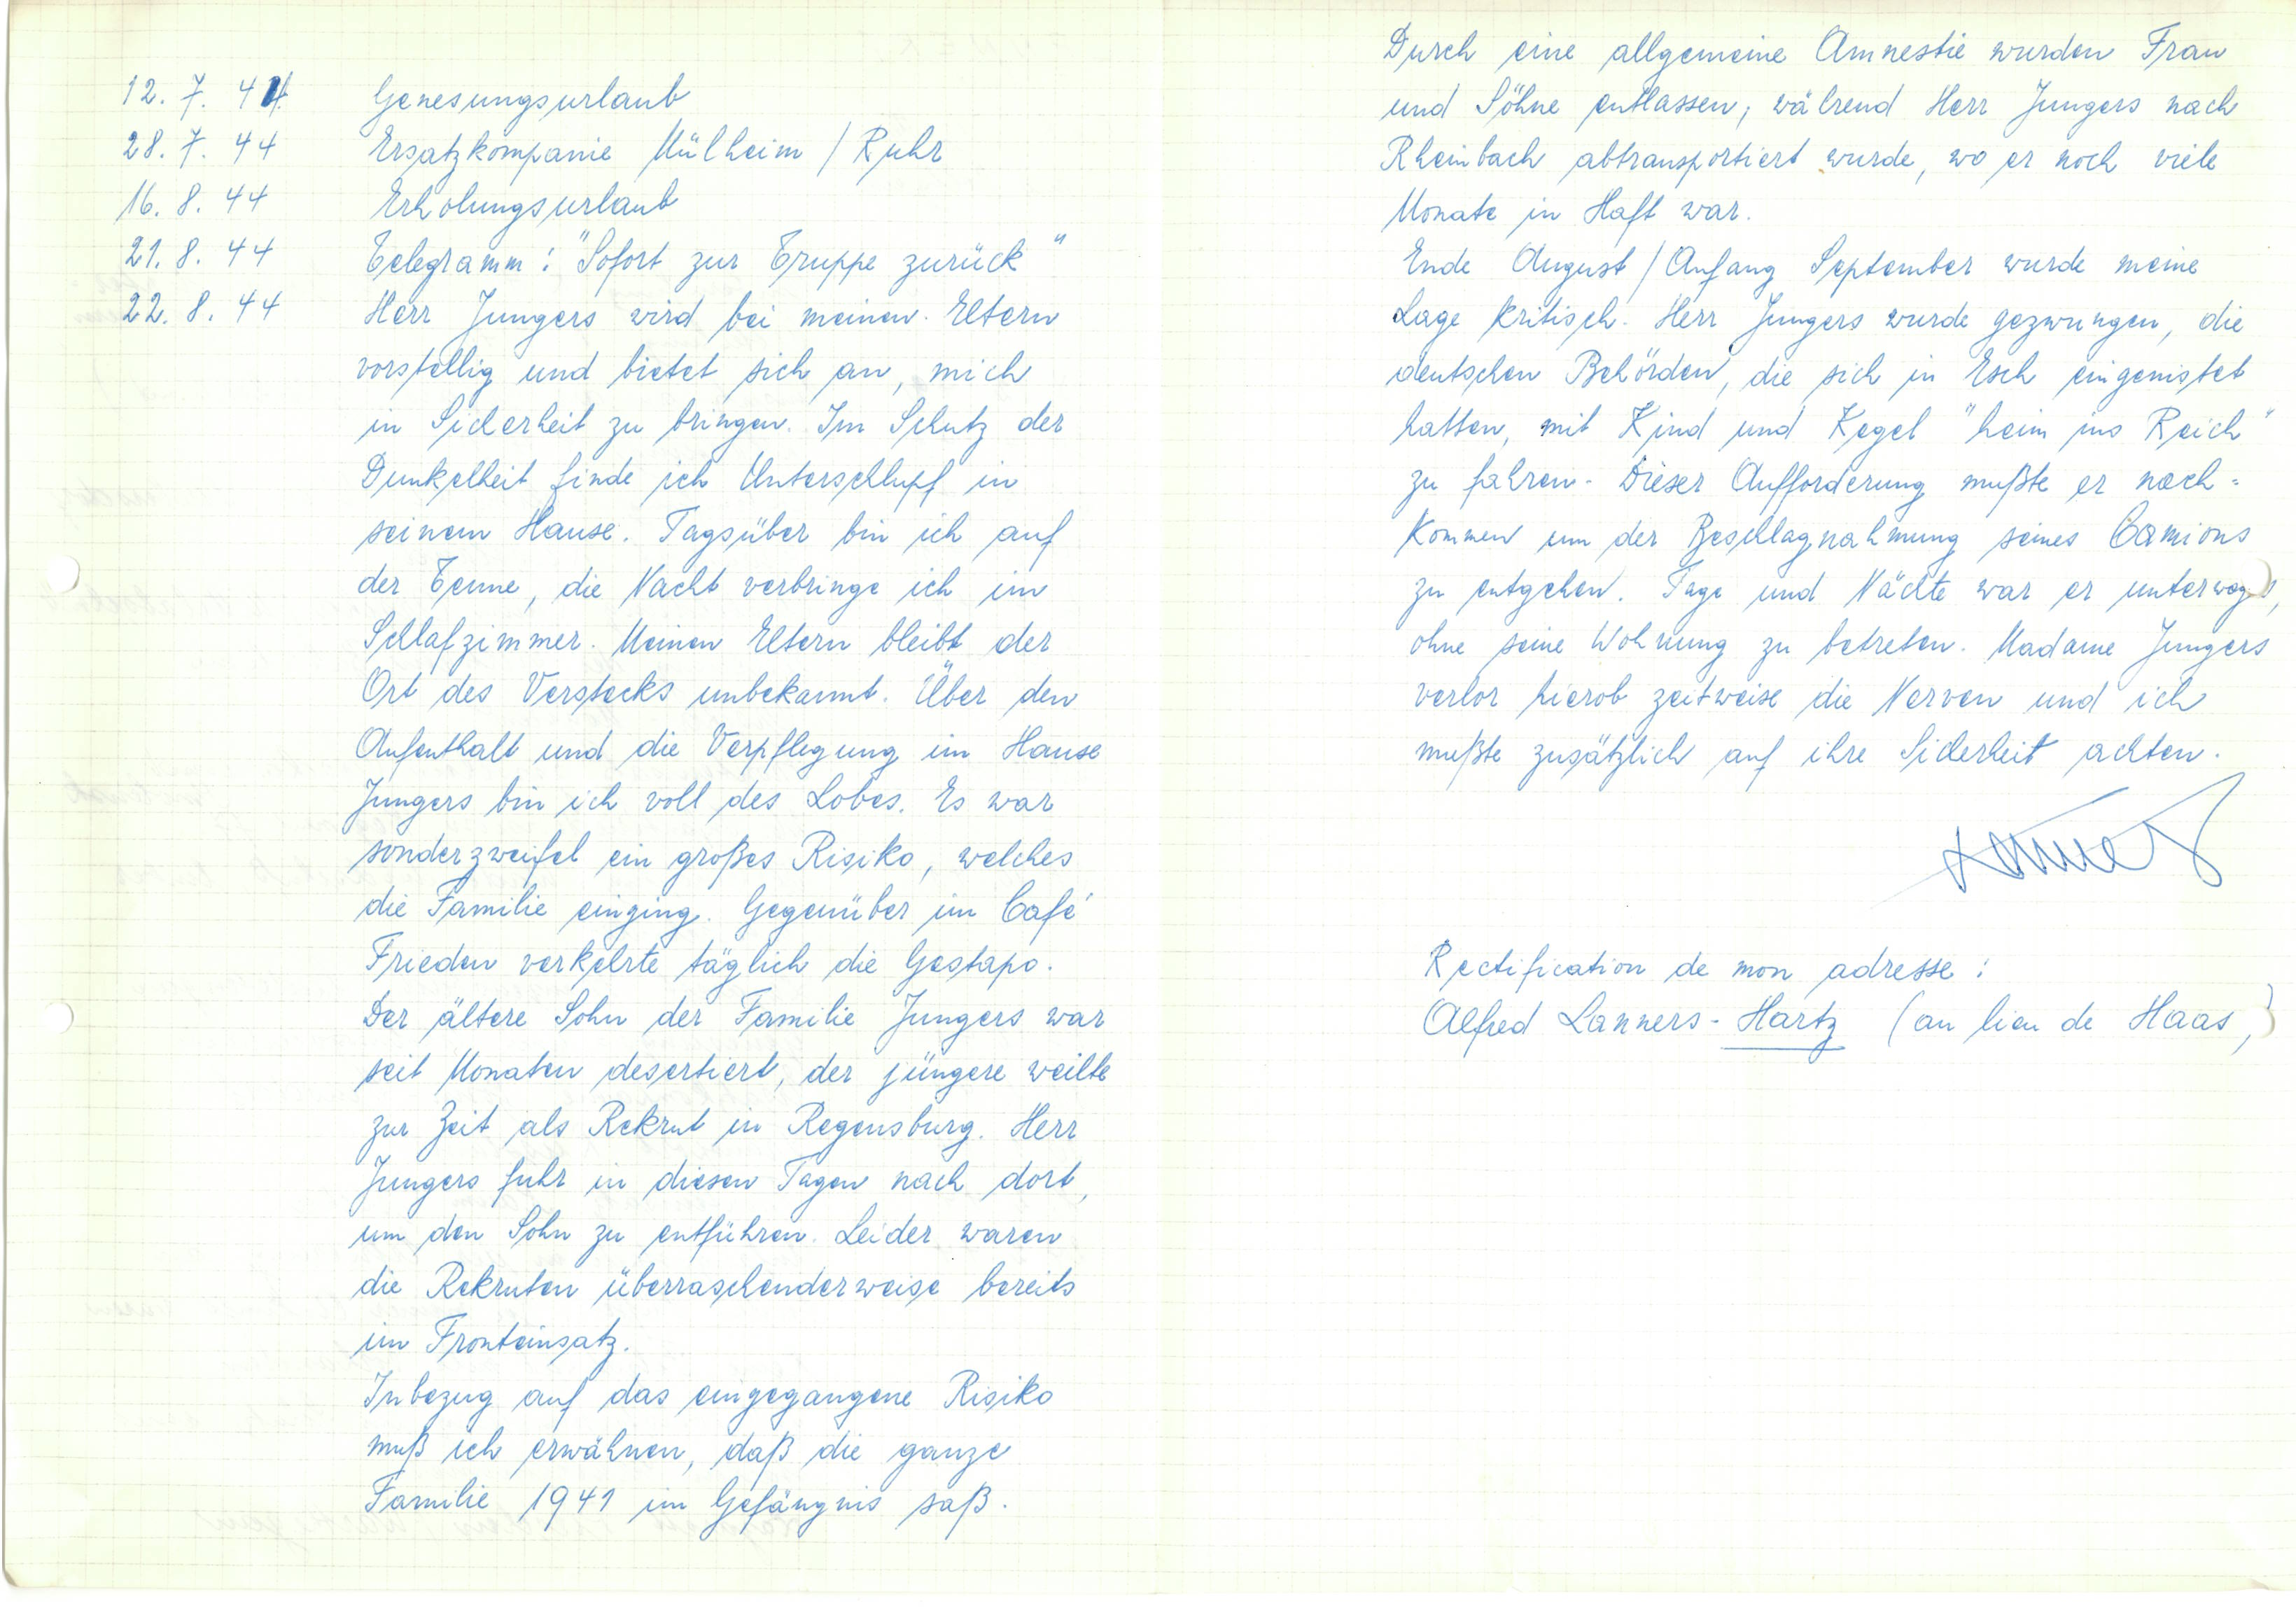 12. 7. 44 Genesungsurlaub
28. 7. 44 Ersatzkompanie Mülheim / Ruhr
16. 8. 44 Erholungsurlaub
21. 8. 44 Telegramm: "Sofort zur Truppe zurück"
22. 8. 44 Herr Jungers wird bei meinen Eltern
vorstellig und bietet sich an, mich
in Sicherheit zu bringen. Im Schutz der
Dunkelheit finde ich Unterschlupf in
seinem Hause. Tagsüber bin ich auf
der Tenne, die Nacht verbringe ich im
Schlafzimmer. Meinen Eltern bleibt der
Ort des Verstecks unbekannt. Über den
Aufenthalt und die Verpflegung im Hause
Jungers bin ich voll des Lobes. Es war
sonderzweifel ein großes Risiko, welches
die Familie einging. Gegenüber im Café
Frieden verkehrte täglich die Gestapo.
Der ältere Sohn der Familie Jungers war
seit Monaten desertiert, der jüngere weilte
zur Zeit als Rekrut in Regensburg. Herr
Jungers fuhr in diesen Tagen nach dort,
um den Sohn zu entführen. Leider waren
die Rekruten überraschenderweise bereits
im Fronteinsatz.
Inbezug auf das eingegangene Risiko
muß ich erwähnen, daß die ganze
Familie 1941 im Gefängnis saß.
Durch eine allgemeine Amnestie wurden Frau
und Söhne entlassen, während Herr Jungers nach
Rheinbach abtransportiert wurde, wo er noch viele
Monate in Haft war.
Ende August / Anfang September wurde meine
Lage kritisch. Herr Jungers wurde gezwungen, die
deutschen Behörden, die sich in Esch eingenistet
hatten, mit Kind und Kegel "heim ins Reich"
zu fahren. Dieser Aufforderung mußte er nach=
kommen um der Beschlagnahmung seines Camions
zu entgehen. Tage und Nächte war er unterwegs,
ohne seine Wohnung zu betreten. Madame Jungers
verlor hierob zeitweise die Nerven und ich
mußte zusätzlich auf ihre Sicherheit achten.
Rectification de mon adresse:
Alfred Lanners-Hartz (au lieu de Haas,)